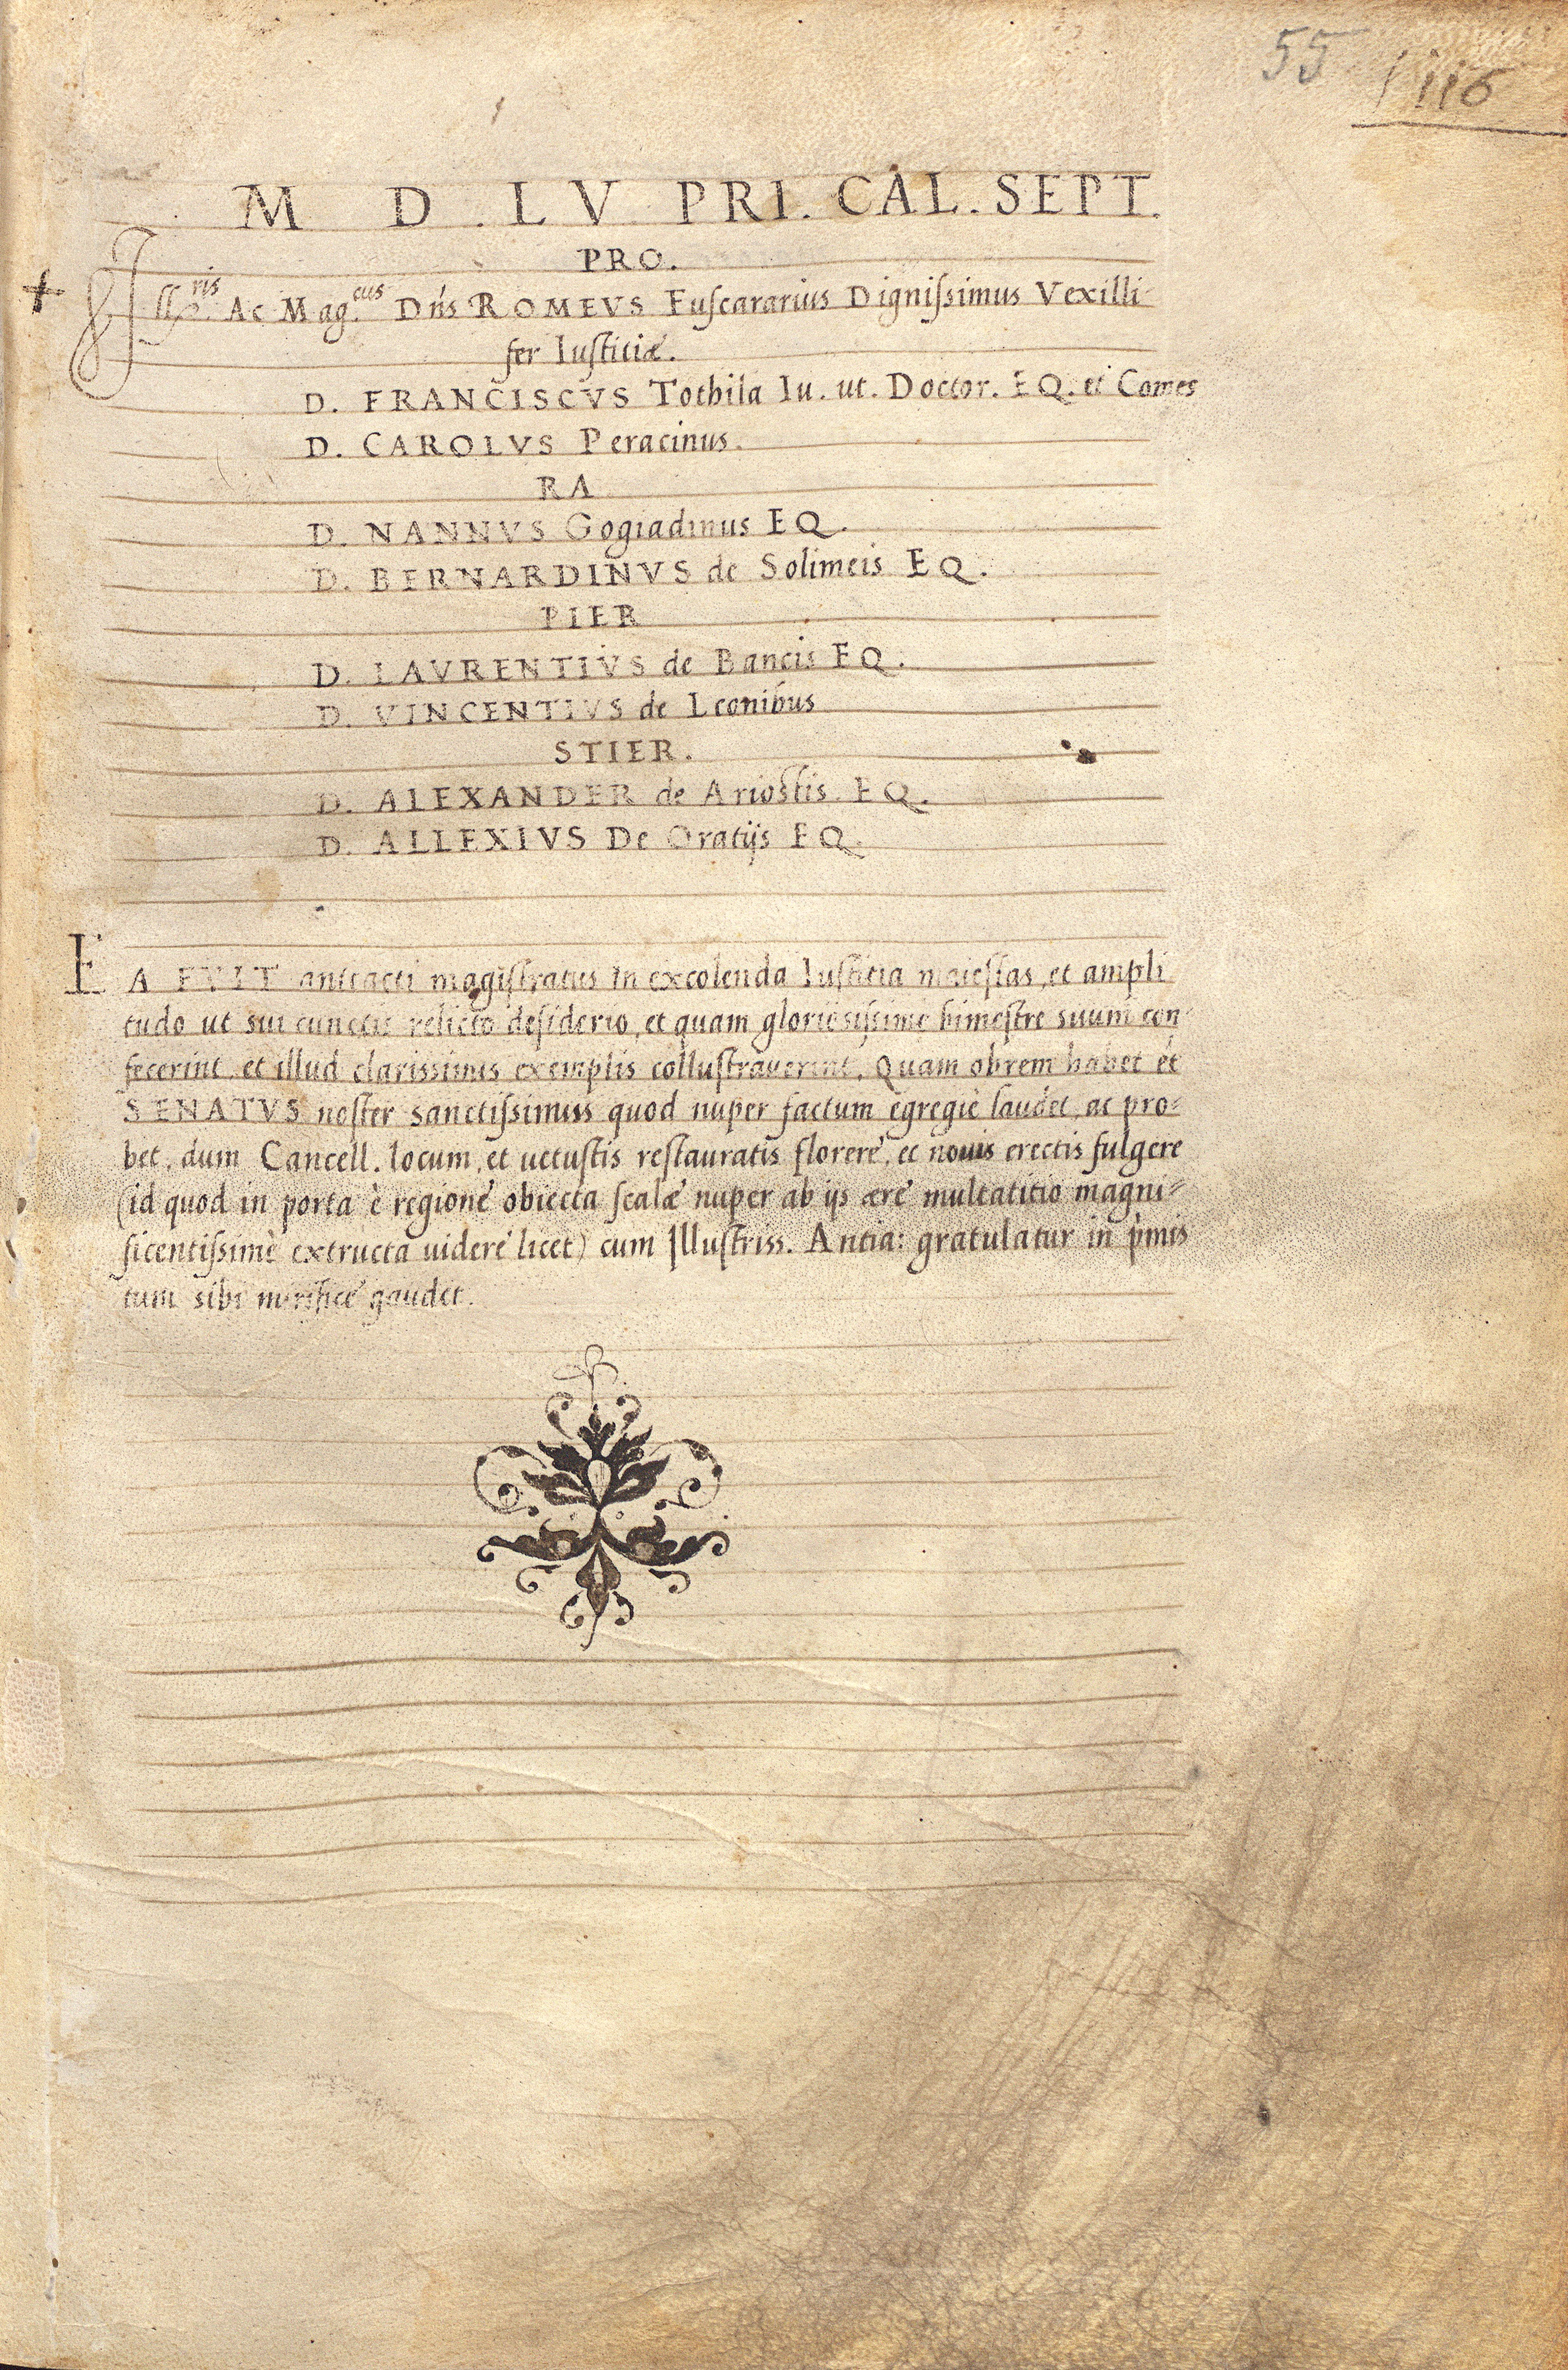 55 116
M D . L V PRI . CAL . SEPT .
PRO .
+ Illr.ris Ac Mag.cus Dńs ROMEVS Fuscararius Dignissimus Vexilli-
fer Iustitiæ .
D . FRANCISCVS Tothila Iu . ut . Doctor . EQ . et Comes
D . CAROLVS Peracinus .
RA
D . NANNVS Gogiadinus EQ .
D . BERNARDINVS de Solimeis EQ .
PIER
D . LAVRENTIVS de Bancis EQ .
D . VINCENTIVS de Leonibus
STIER .
D . ALEXANDER de Ariostis . EQ .
D . ALLEXIVS De Oratijs EQ .
EA FVIT anteacti magistratus in excolenda Iustitia maiestas, et ampli
tudo ut sui cunctis relicto desiderio, et quam gloriosissime bimestre suum con-
fecerint et illud clarissimis exemplis collustraverint . Quam obrem habet et
SENATVS noster sanctissimus quod nuper factum egregiè laudet, ac pro-
bet, dum Cancell . locum, et uetustis restauratis florere, et nouis erectis fulgere
(id quod in porta è regione obiecta scalæ nuper ab ijs ære multatitio magni-
ficentissimè extructa uidere licet) cum Illustriss . Antia: gratulatur in p̀mis
tum sibi mirifice gaudet .